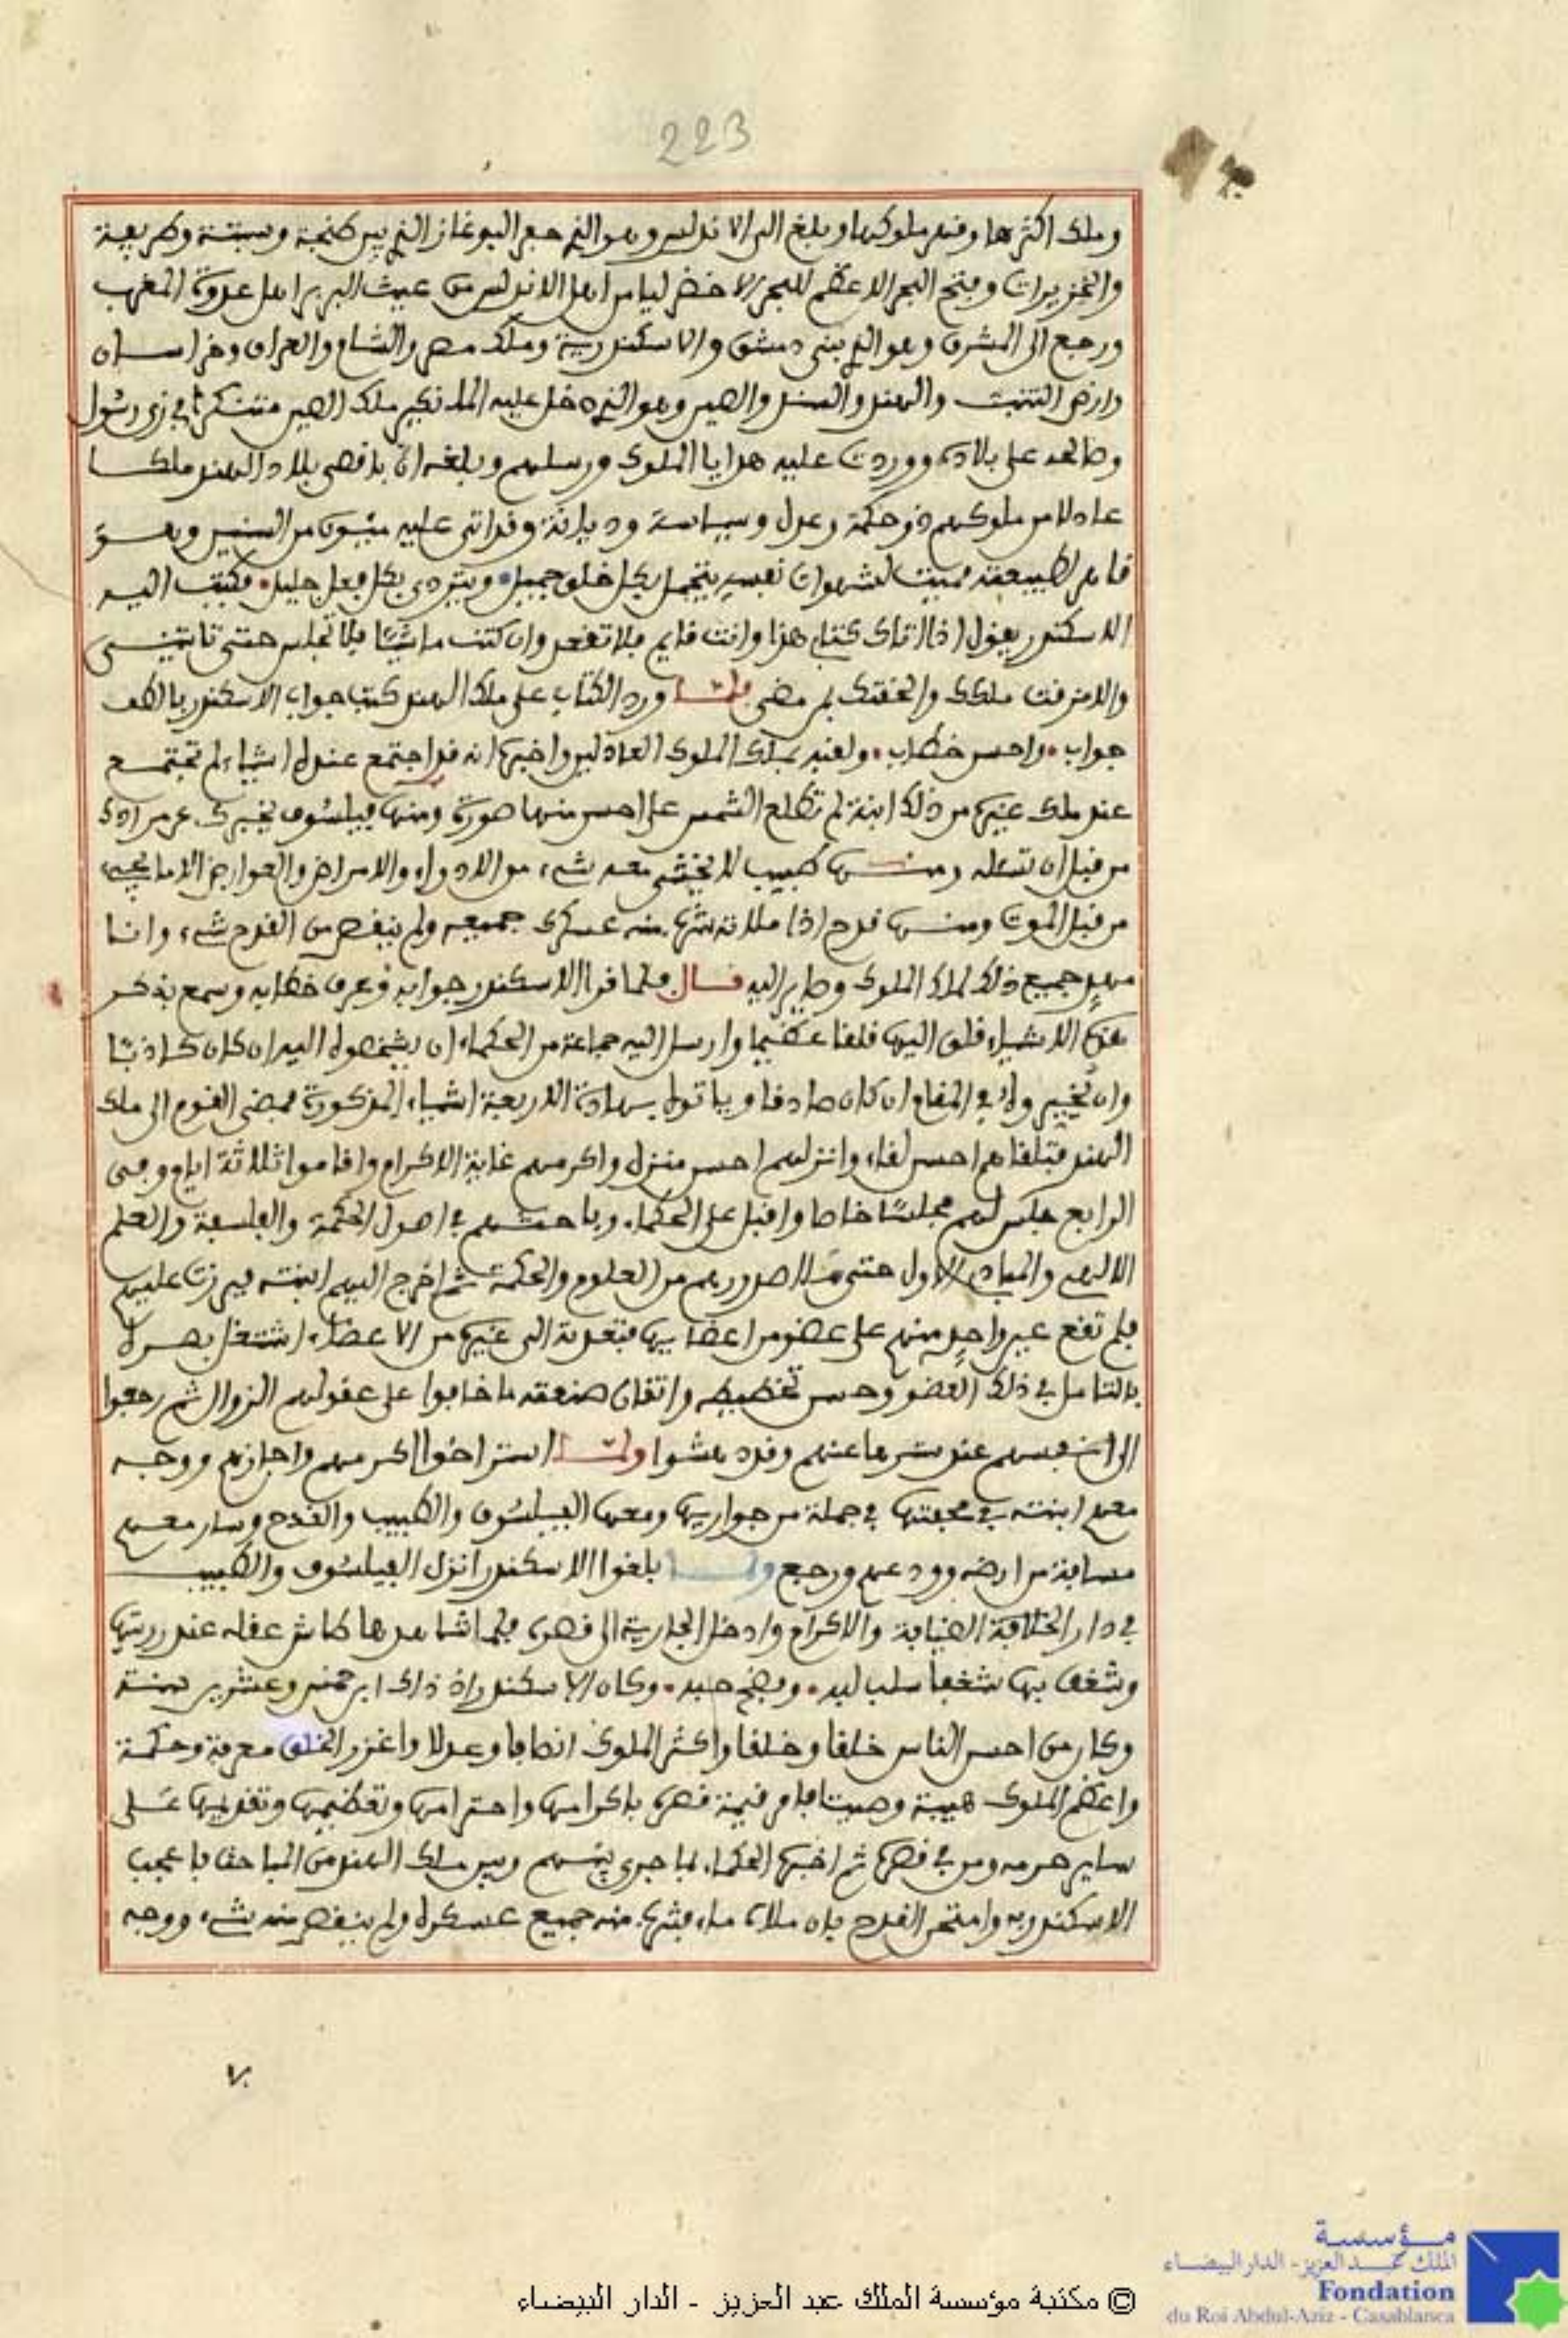 223
وملك اكثرها وقهر ملوكها وبلغ الى الاندلس وهو الذي حفر البوغاز الذي بين طنجة وسبتة وطريفة
والخزيرات وفتح البحر الاعظم للبحر الاخضر ليامن اهل الاندلس من عيث البربر اهل عدوة المغرب
ورجع الى المشرق وهو الذي بنى دمشق والاسكندرية وملك مصر والشام والعراق وخراسان
وارض التبت والهند والسند والصين وهو الذي دخل عليه الملك ملك الصين متنكرا في زي رسول
وصالحه على بلاده ووردت عليه هدايا الملوك ورسلهم وبلغه ان باقصى بلاد الهند ملكا
عادلا من ملوكهم ذو حكمة وعدل وسياسة وديانة وقد اتى عليه مئون من السنين وهو
قاهر لطبيعته مميت لشهوات نفسه يتجمل بكل خلق جميل ويتردى بكل فعل جليل فكتب اليه
الاسكندر يقول اذا اتاك كتابي هذا وانت قايم فلا تقعد وان كنت ماشيا فلا تجلس حتى تاتيني
والا مزقت ملكك والحقتك بمن مضى فلما ورد الكتاب على ملك الهند كتب جواب الاسكندر بالطف
جواب واحسن خطاب ولقبه بملك الملوك العادلين واخبره انه قد اجتمع عنده اشياء لم تجتمع
عند ملك غيره من ذلك ابنة لم تطلع الشمس على احسن منها صورة ومنها فيلسوف يخبرك عن مرادك
من قبل ان تسئله ومنها طبيب لا يخشى معه شيء من الادواء والامراض والعوارض الا ما يجيء
من قبل الموت ومنها قدح اذا ملاته شرب منه عسكرك جميعه ولم ينقص من القدح شيء وانا
مهد جميع ذلك لملك الملوك وصاير اليه قال فلما قرا الاسكندر جوابه وعرف خطابه وسمع بذكر
هذه الاشياء قلق اليها قلقا عظيما وارسل اليه جماعة من الحكماء ان يشخصوه اليه ان كان كاذبا
وان يخيروه في المقام ان كان صادقا وياتوه بهاذه الاربعة اشياء المذكورة فمضى القوم الى ملك
الهند فتلقاهم احسن لقاء وانزلهم احسن منزل واكرمهم غاية الاكرام واقاموا ثلاثة ايام وفي
الرابع جلس لهم مجلسا خاصا واقبل على الحكماء وباحثهم في اصول الحكمة والفلسفة والعلم
الالهي والمبادي الاول حتى ملا صدورهم من العلوم والحكمة ثم اخرج اليهم ابنته فبرزت عليهم
فلم تقع عين واحد منهم على عضو من اعضايها فتعدته الى غيره من الاعضاء اشتغل بصره
بالتامل في ذلك العضو وحسن تخطيطه واتقان صنعته ما خافوا على عقولهم الزوال ثم رجعوا
الى انفسهم عند سترها عنهم وقد دهشوا ولما استراحوا اكرمهم واجازهم ووجه
معهم ابنته في محفتها في جملة من جواريها ومعها الفيلسوف والطبيب والقدح وسار معهم
مسافة من ارضه وودعهم ورجع ولما بلغوا الاسكندر انزل الفيلسوف والطبيب
في دار الضيافة والاكرام وادخل الجارية الى قصره فلما شاهدها طاش عقله عند رويتها
وشغف بها شغفا سلب لبه وكان الاسكندر اذ ذاك ابن خمس وعشرين سنة
وكان من احسن الناس خلقا وخلقا واكثر الملوك انصافا وعدلا واغزر الخلق معرفة وحكمة
واعظم الملوك هيبة وصيتا فامر قيمة قصره باكرامها واحترامها وتعظيمها وتقديمها على
ساير حرمه ومن في قصره ثم اخبره الحكماء بما جرى بينهم وبين ملك الهند من المباحث فاعجب
الاسكندر به وامتحن القدح بان ملاه ماء فشرب منه جميع عسكره ولم ينقص منه شيء ووجه
٧٠
© مكتبة مؤسسة الملك عبد العزيز - الدار البيضاء
مؤسسة
الملك عبد العزيز - الدار البيضاء
Fondation
du Roi Abdul-Aziz - Casablanca